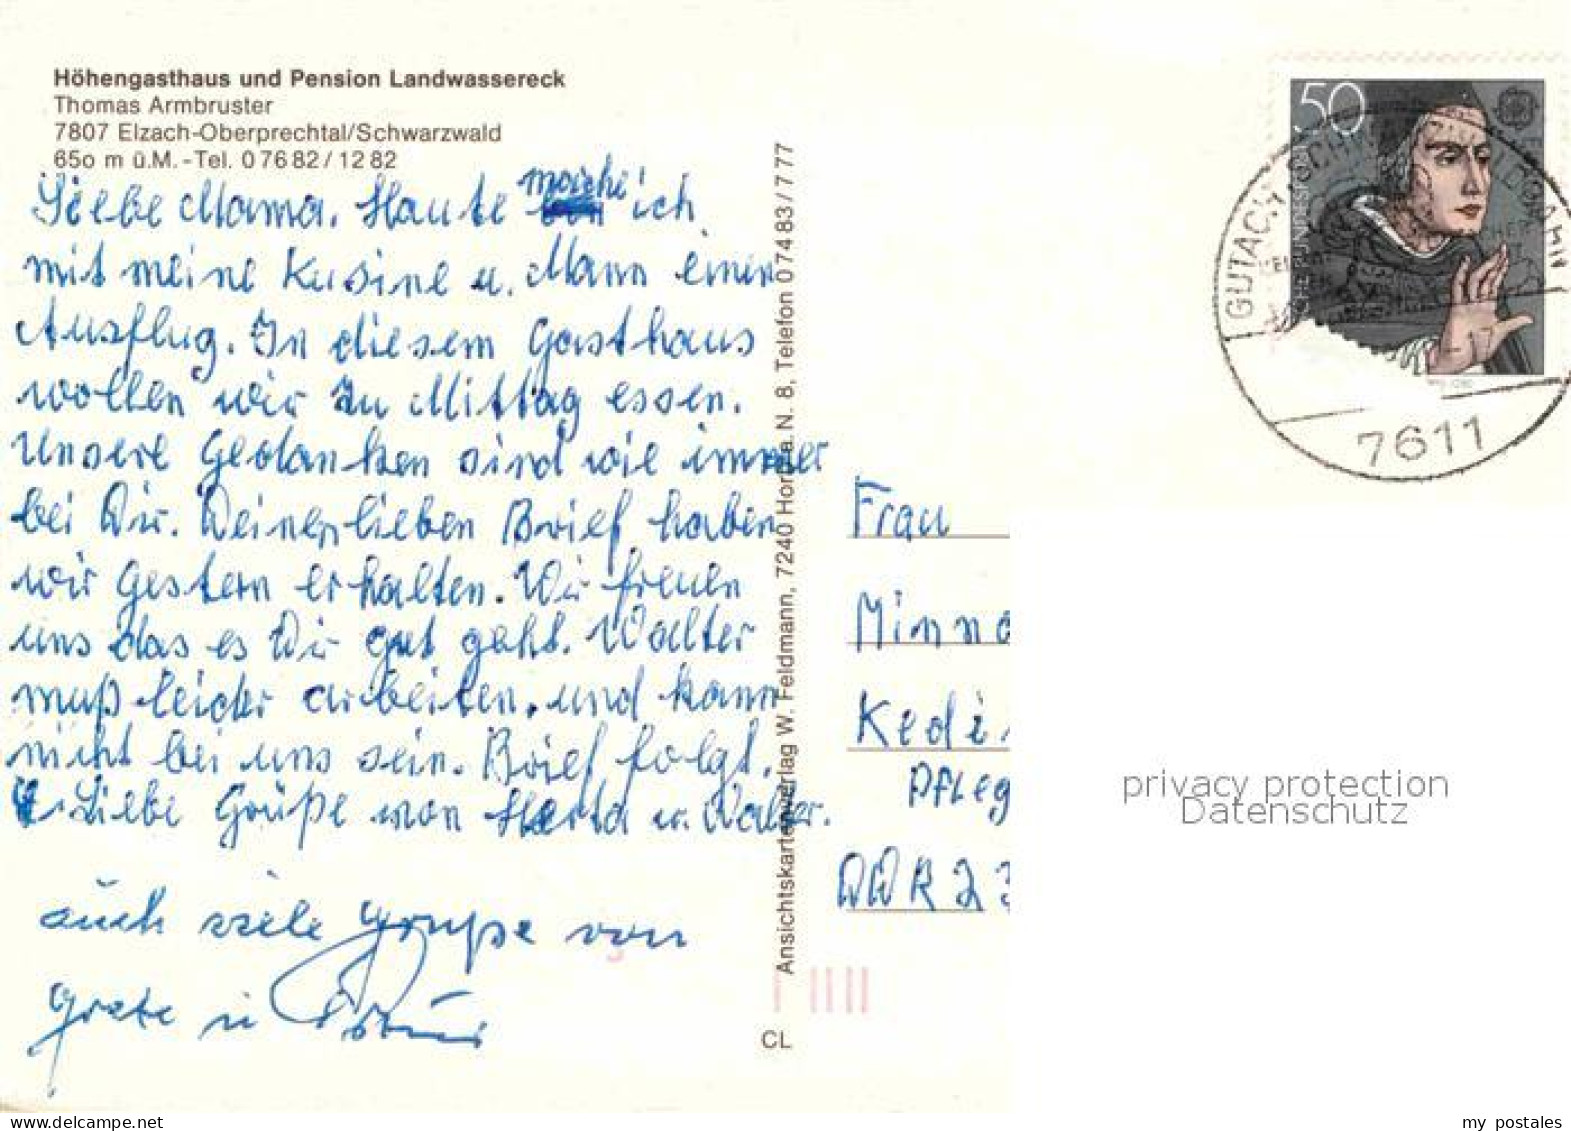 Höhengasthaus und Pension Landwassereck
Thomas Armbruster
7807 Elzach-Oberprechtal/Schwarzwald
65o m ü.M.-Tel. 07682/1282
Liebe Mama. Haute mache ich
mit meine Kusine u. Mann einen
Ausflug. In diesem Gasthaus
wollen wir zu Mittag essen.
Unsere Gedanken sind wie immer
bei Dir. Deinen lieben Brief haben
wir gestern erhalten. Wir freuen
uns das es Dir gut geht. Walter
muß leider arbeiten. und kann
nicht bei uns sein. Brief folgt.
Liebe Grüße von Herta u. Walter.
auch viele Grüße von
Grete u
Ansichtskartenverlag W. Feldmann, 7240 Horb a. N. 8, Telefon 07483/777
CL
50
GUTACH
7611
Frau
Minna
Kedi
Pfleg
DDR 23
privacy protection
Datenschutz
my_postales